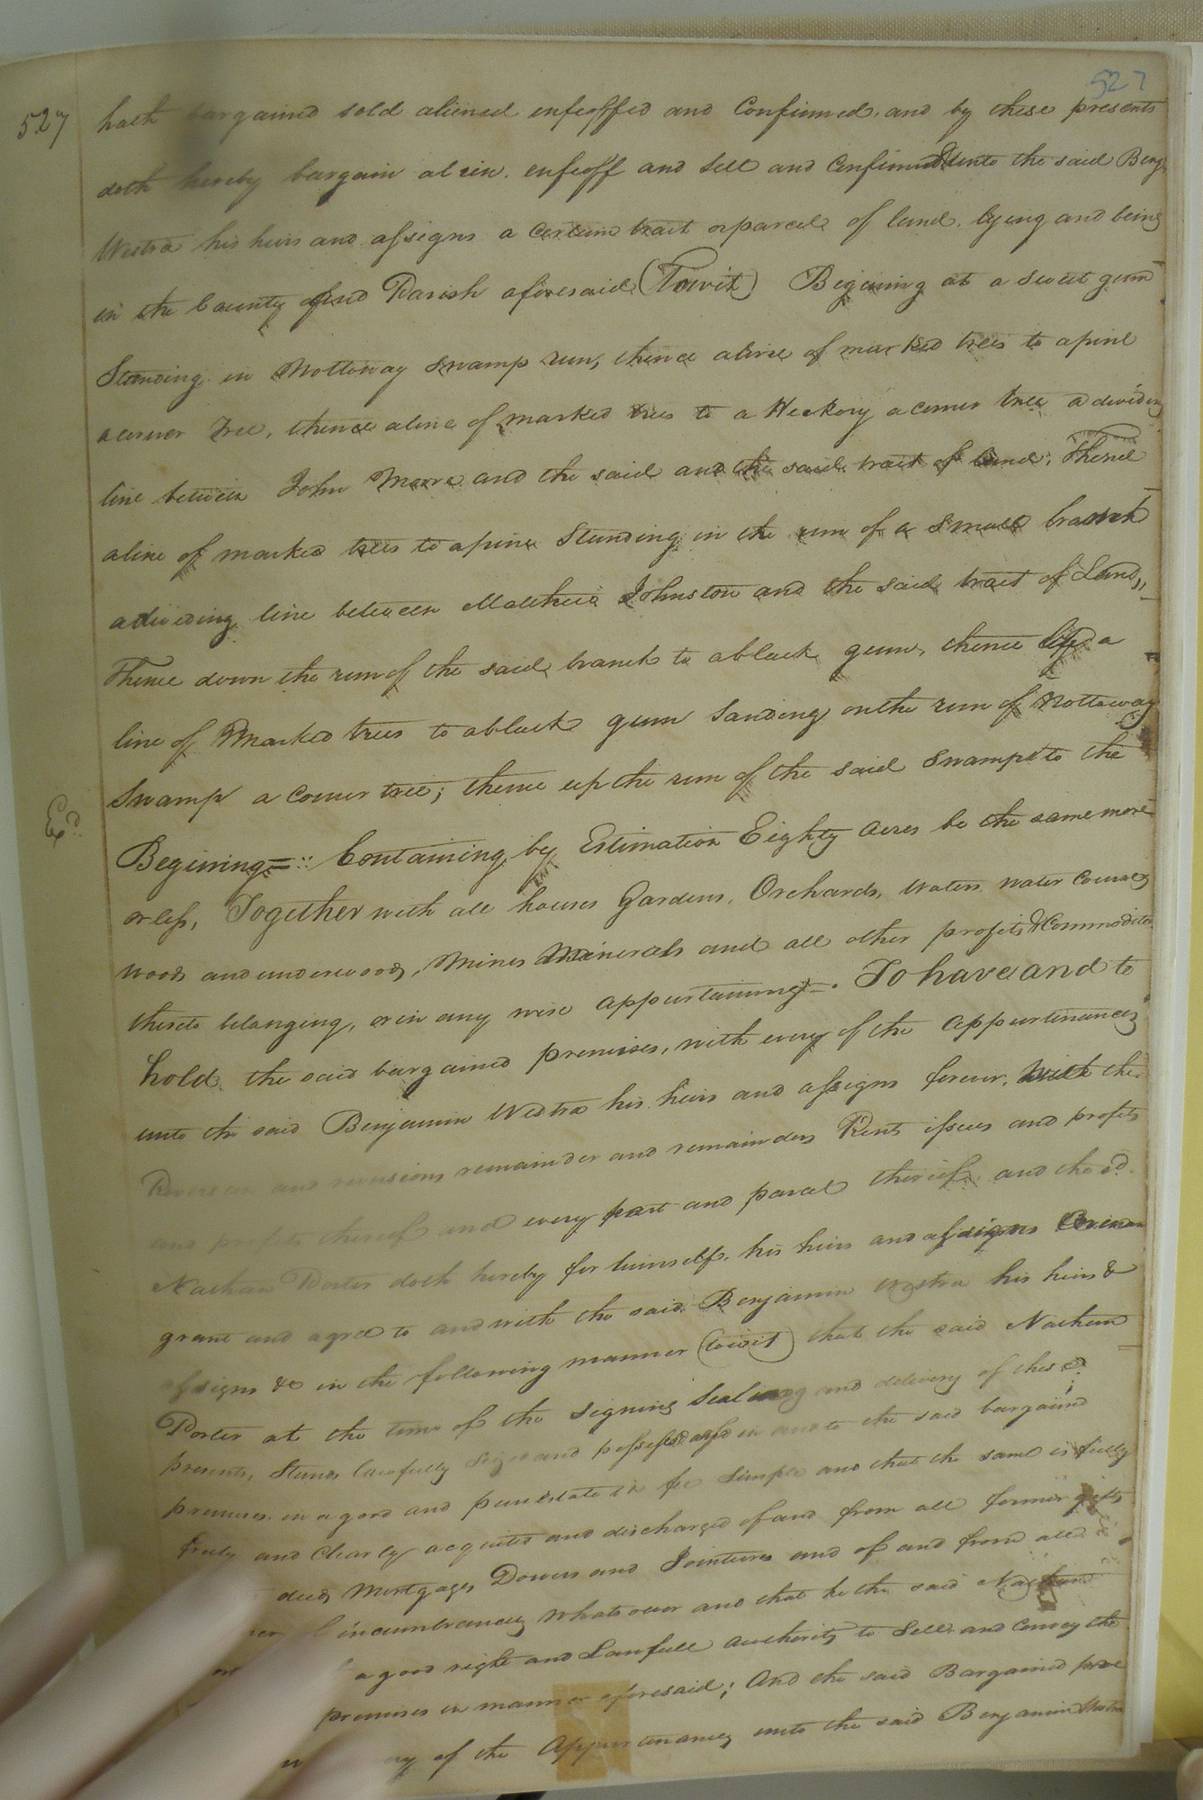 527
527
hath bargained sold aliened enfeoffed and Confirmed, and by these presents
doth hereby bargain alien. enfeoff and Sell and Confirm unto the said Benj
Westra his heirs and assigns a Certain trait or parcel of land. lying and being
in the County and Parish aforesaid (Towit) Begining at a sweet gum
Standing in Nottoway Swamp run, thence aline of marked trees to apine
acorner Tree, thence aline of marked trees to a Heckory acorner tree adeviding
line between John Moore and the said and the said trait of land; Thence
aline of marked trees to apine Standing in the run of a Small branch
adiveding line between Matthew Johnston and the said trait of Land,,
Thence down the run of the said branch to ablack gum, thence up a
line of Marked trees to ablack gum Sanding onthe run of Nottoway
Swamp a corner tree; thence up the run of the said Swamp to the
Exd.
Begining=:: Containing by Estimation Eighty acres be the same more
or less, Together with all houses Gardens, Orchards, waters water Courses
woods and underwoods, Mines Minerals and all other profits & Commodites
thereto belonging, or in any wise appurtaining. To have and to
hold the said bargained premises, with every of the appurtinances
unto the said Benjamin Westra his heirs and assigns forever, With the
Reversion and reversions remainder and remainders Rents issues and profits
and profits thereof and every part and parcel thereof. and the sd.
Nathan Porter doth hereby for himself. his heirs and assigns Covinan
grant and agree to and with the said Benjamin Westra his heirs &
assigns &c in the following manner (towit) that the said Nathan
Porter at the time of the Segning Sealing and delivery of these
presents, Stands lawfully Seized and possessed in and to the said bargained
premises in a good and pure Estate in fee Simple and that the same is fully
freely and clearly acquited and discharged of and from all former gifts
deeds Mortgages Dowers and Jointures and of and from all
incumbrances whatsoever and that he the said Nathan
a good right and Lawfull authority to Sell and Convey the
premises in manner aforesaid; And the said Bargained
of the Appurtenances unto the said Benjamin Westra